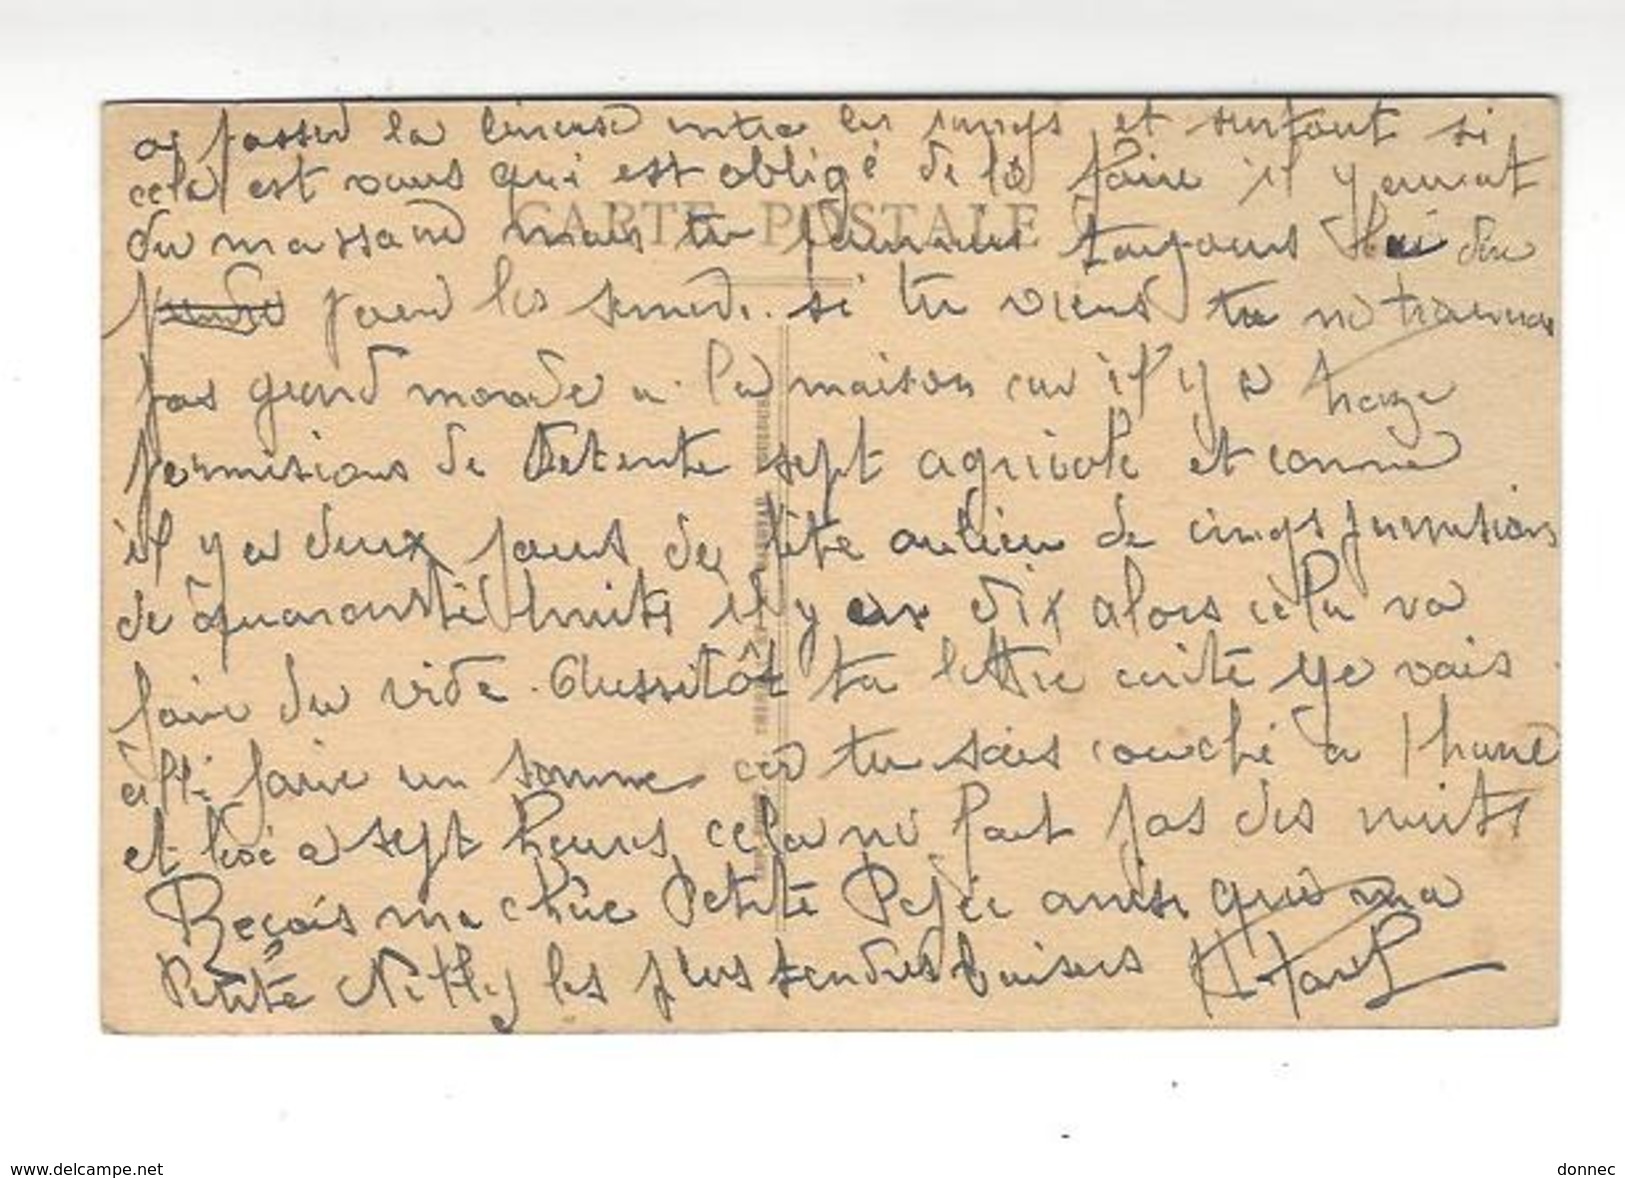 passer la lineuse entre les rangs et surtout si
cela est vous qui est obligé de la faire il y aurait
du massacre mais tu pourras toujours lui dire
pour les semer. si tu viens tu ne trouveras
pas grand monde a la maison car il y a treize
permisions de Detente sept agricole et comme
il y a deux jours de fête aulieu de cinqs permisions
de quarante huits il y en dix alors cela va
faire du vide. Aussitôt ta lettre ecrite je vais
allé faire un somme car tu sais couché a 1 heure
et levé a sept heures cela ne fait pas des nuits
Reçois ma chère Petite ainsi que ma
Petite Netty les plus tendres baisers
CARTE POSTALE
www.delcampe.net
donnec